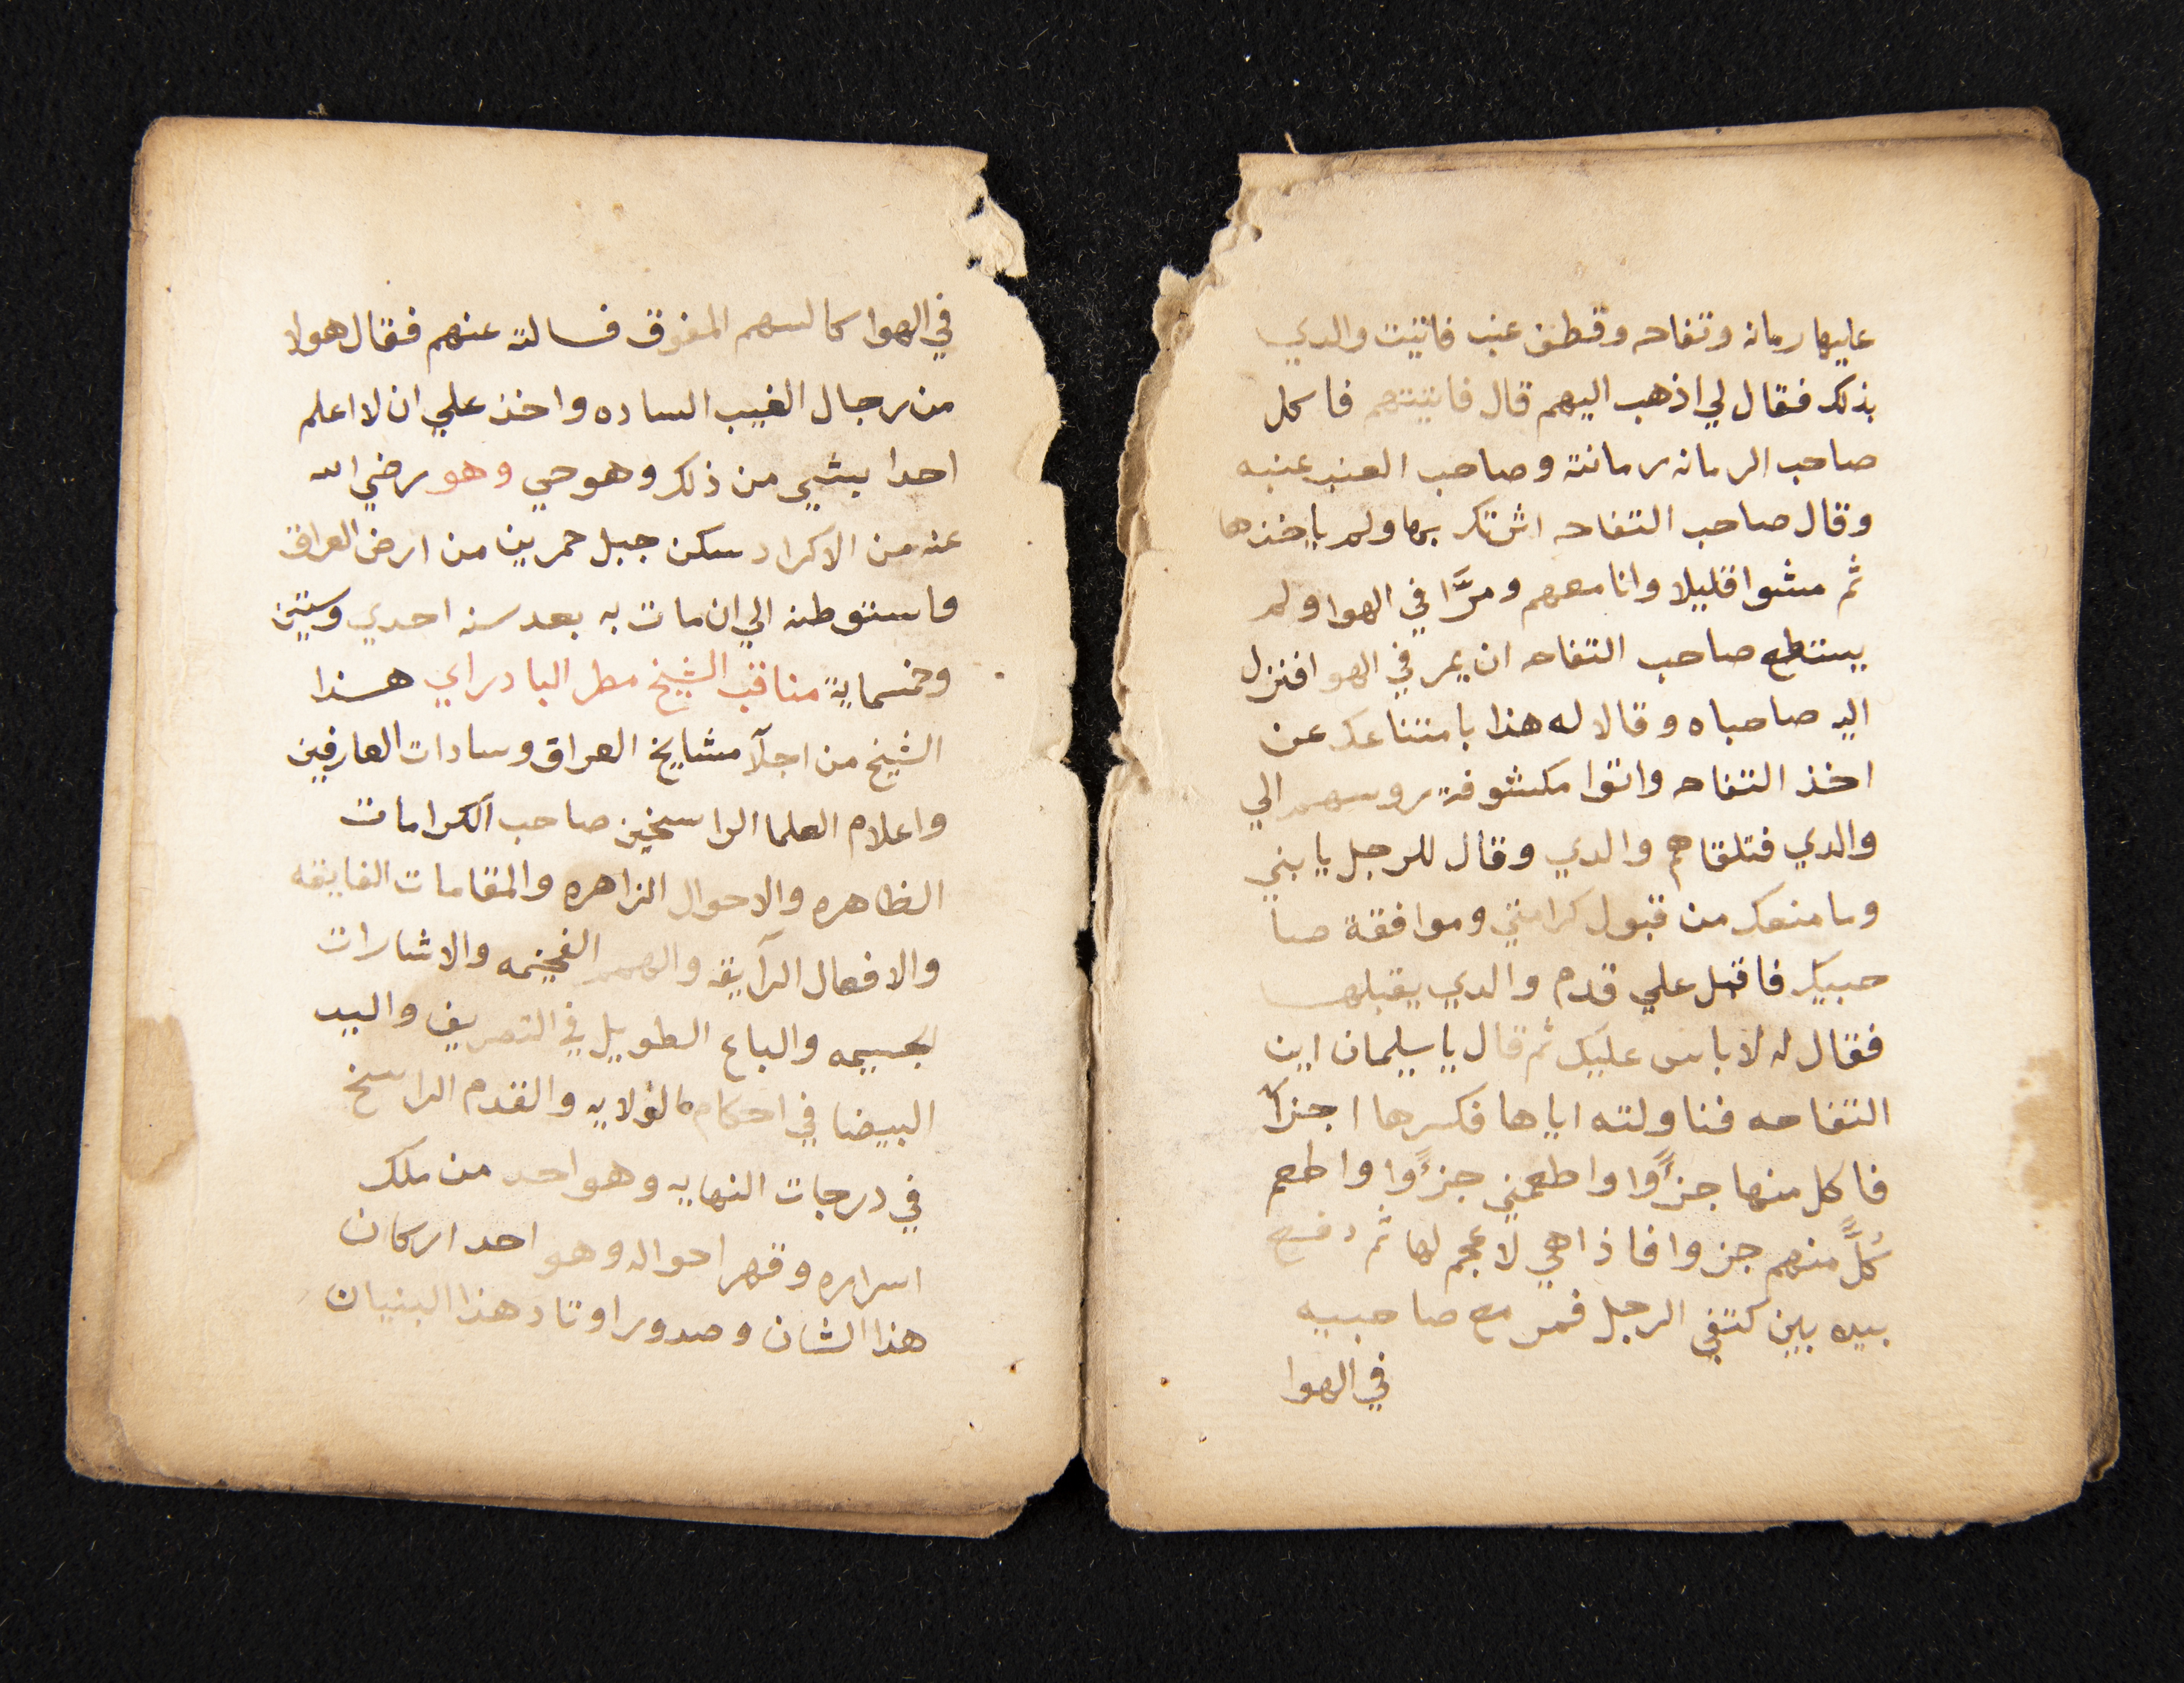 عليها رمانه وتفاحه وقطف عنب فاتيت والدي
بذلك فقال لي اذهب اليهم قال فاتيتهم فاكل
صاحب الرمانه رمانته وصاحب العنب عنبه
وقال صاحب التفاحه اشرتك بها ولم ياخذها
ثم مشوا قليلا وانا معهم ومرَّا في الهوا ولم
يستطع صاحب التفاحه ان يمر في الهوا فنزل
اليه صاحباه وقالا له هذا بامتناعك عن
اخذ التفاحه واتوا مكشوفة روسهم الي
والدي فتلقاهم والدي وقال للرجل يا بني
وما منعك من قبول كرامتي وموافقة صا
حبيك فاقبل علي قدم والدي يقبلها
فقال له لا باس عليك ثم قال يا سليمان اين
التفاحه فناولته اياها فكسرها اجزآ
فاكل منها جزًوا واطعمني جزًوا واطعم
كلًّ منهم جزوا فاذا هي لا عجم لها ثم دفع
بيده بين كتفي الرجل فمر مع صاحبيه
في الهوا
في الهوا كالسهم المفوق فسالته عنهم فقال هولا
من رجال الغيب الساده واخذ علي ان لا اعلم
احدا بشي من ذلك وهو حي وهو رضي الله
عنه من الاكراد سكن جبل حمرين من ارض العراق
فاستوطنه الي ان مات به بعد سنه احدي وستين
وخمسماية مناقب الشيخ مطر البادراي هذا
الشيخ من اجلآ مشايخ العراق وسادات العارفين
واعلام العلما الراسخين صاحب الكرامات
الظاهره والاحوال الزاهره والمقامات الفايقه
والافعال الرآيقه والهمم الفخيمه والاشارات
الجسيمه والباع الطويل في التصريف واليد
البيضا في احكام الولايه والقدم الراسخ
في درجات النهايه وهو احد من ملك
اسراره وقهر احواله وهو احد اركان
هذا الشان وصدور اوتاد هذا البنيان